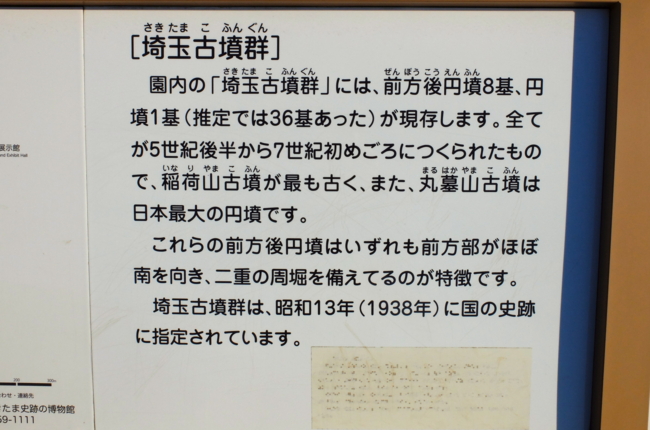 [埼玉古墳群]
さきたまこふんぐん
園内の「埼玉古墳群」には、前方後円墳8基、円
さきたまこふんぐん ぜんぽうこうえんふん
墳1基(推定では36基あった)が現存します。全て
が5世紀後半から7世紀初めごろにつくられたもの
で、稲荷山古墳が最も古く、また、丸墓山古墳は
いなりやまこふん まるはかやまこふん
日本最大の円墳です。
これらの前方後円墳はいずれも前方部がほぼ
南を向き、二重の周堀を備えてるのが特徴です。
埼玉古墳群は、昭和13年(1938年)に国の史跡
に指定されています。
展示館
わせ・連絡先
たま史跡の博物館
59-1111